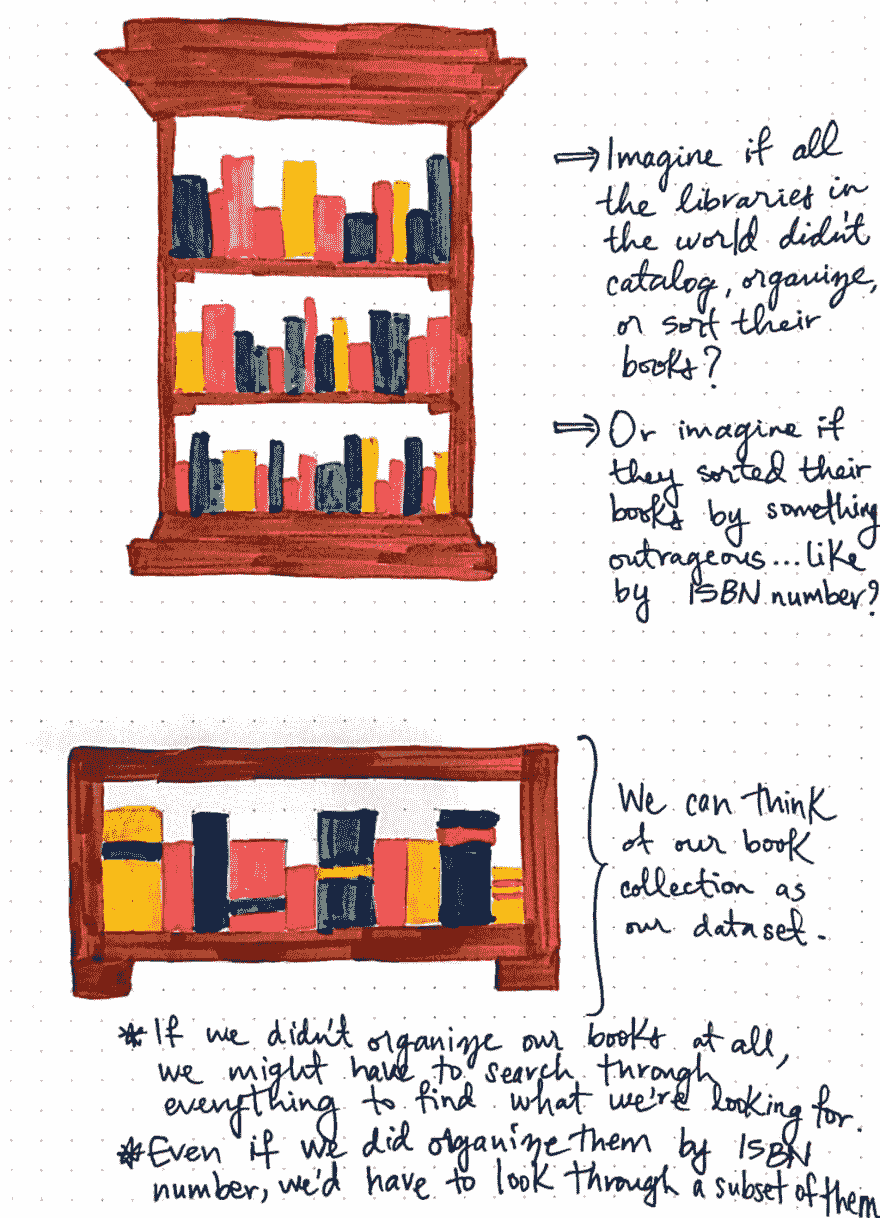 ⇒ Imagine if all
the libraries in
the world didn't
catalog, organize,
or sort their
books?
⇒ Or imagine if
they sorted their
books by something
outrageous...like
by ISBN number?
We can think
of our book
collection as
our dataset.
* If we didn't organize our books at all,
we might have to search through
everything to find what we're looking for.
* Even if we did organize them by ISBN
number, we'd have to look through a subset of them